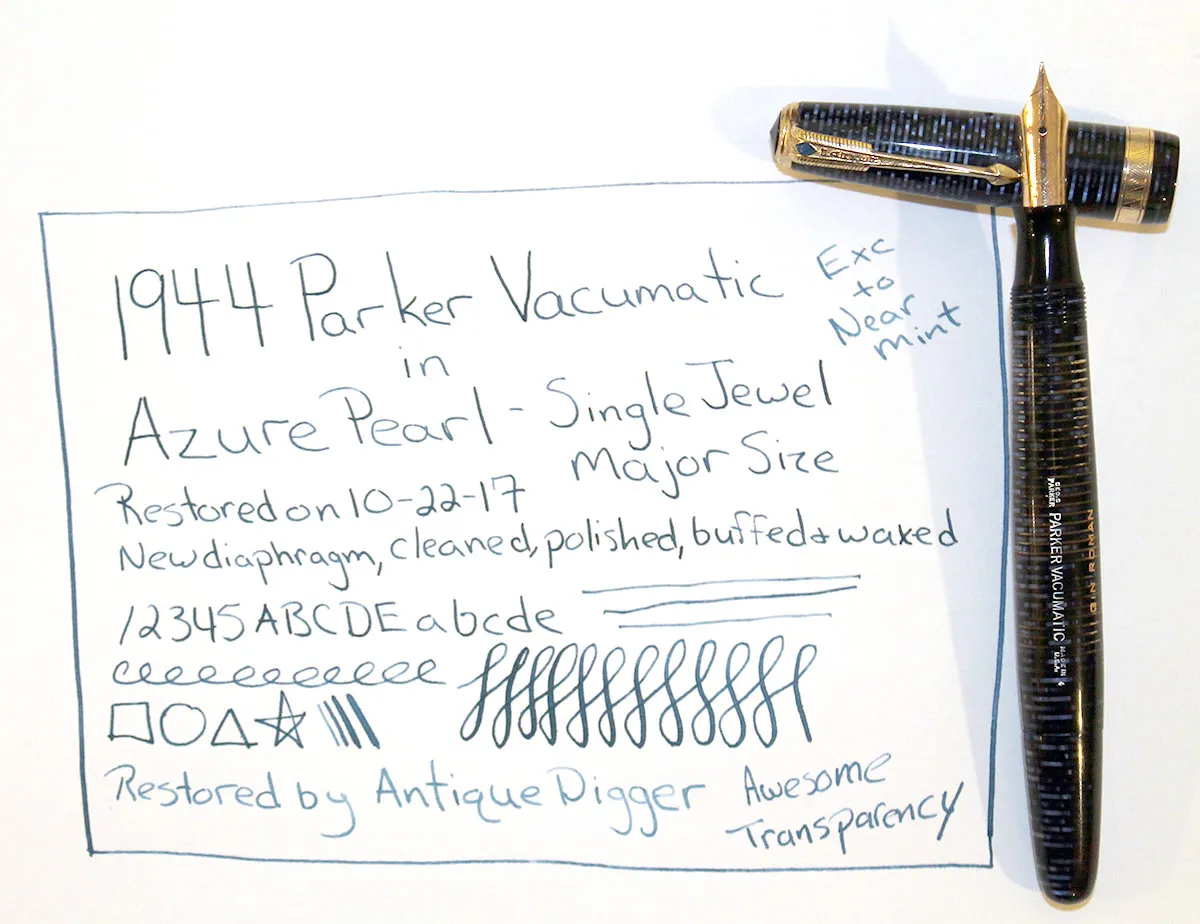 1944 Parker Vacumatic
Exc
to
Near
mint
in
Azure Pearl - Single Jewel
Major Size
Restored on 10-22-17
New diaphragm, cleaned, polished, buffed + waxed
12345 ABCDE abcde
Restored by Antique Digger
Awesome
Transparency
GEO.S.
PARKER
PARKER VACUMATIC
MADE IN
U.S.A.
4
GIN ROMAN